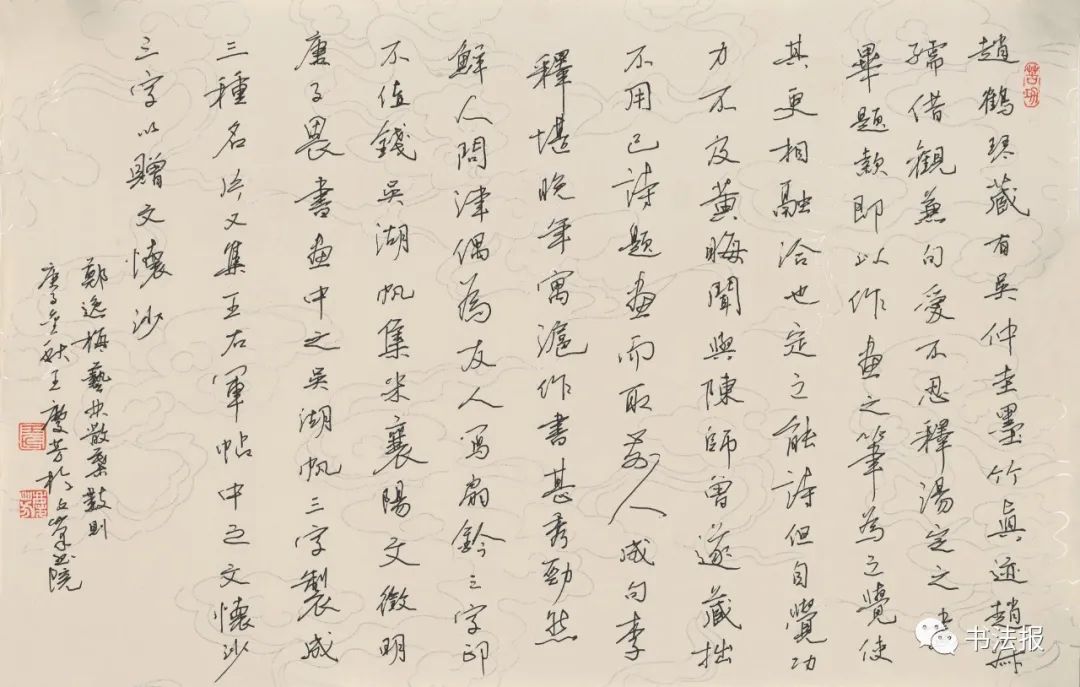 趙鶴琴藏有吳仲圭墨竹真迹趙叔
孺借觀兼旬愛不忍釋湯定之畫
畢題款即以作畫之筆為之覺使
其更相融洽也定之能詩但自覺功
力不及黃晦聞與陳師曾遂藏拙
不用己詩題畫而取前人成句李
釋堪晚年寓滬作書甚秀勁然
鮮人問津偶為友人寫扇鈐三字印
不值錢吳湖帆集米襄陽文徵明
唐子畏書畫中之吳湖帆三字製成
三種名片又集王右軍帖中之文懷沙
三字以贈文懷沙
鄭逸梅藝林散葉數則
庚子金秋王慶芳於
书法报